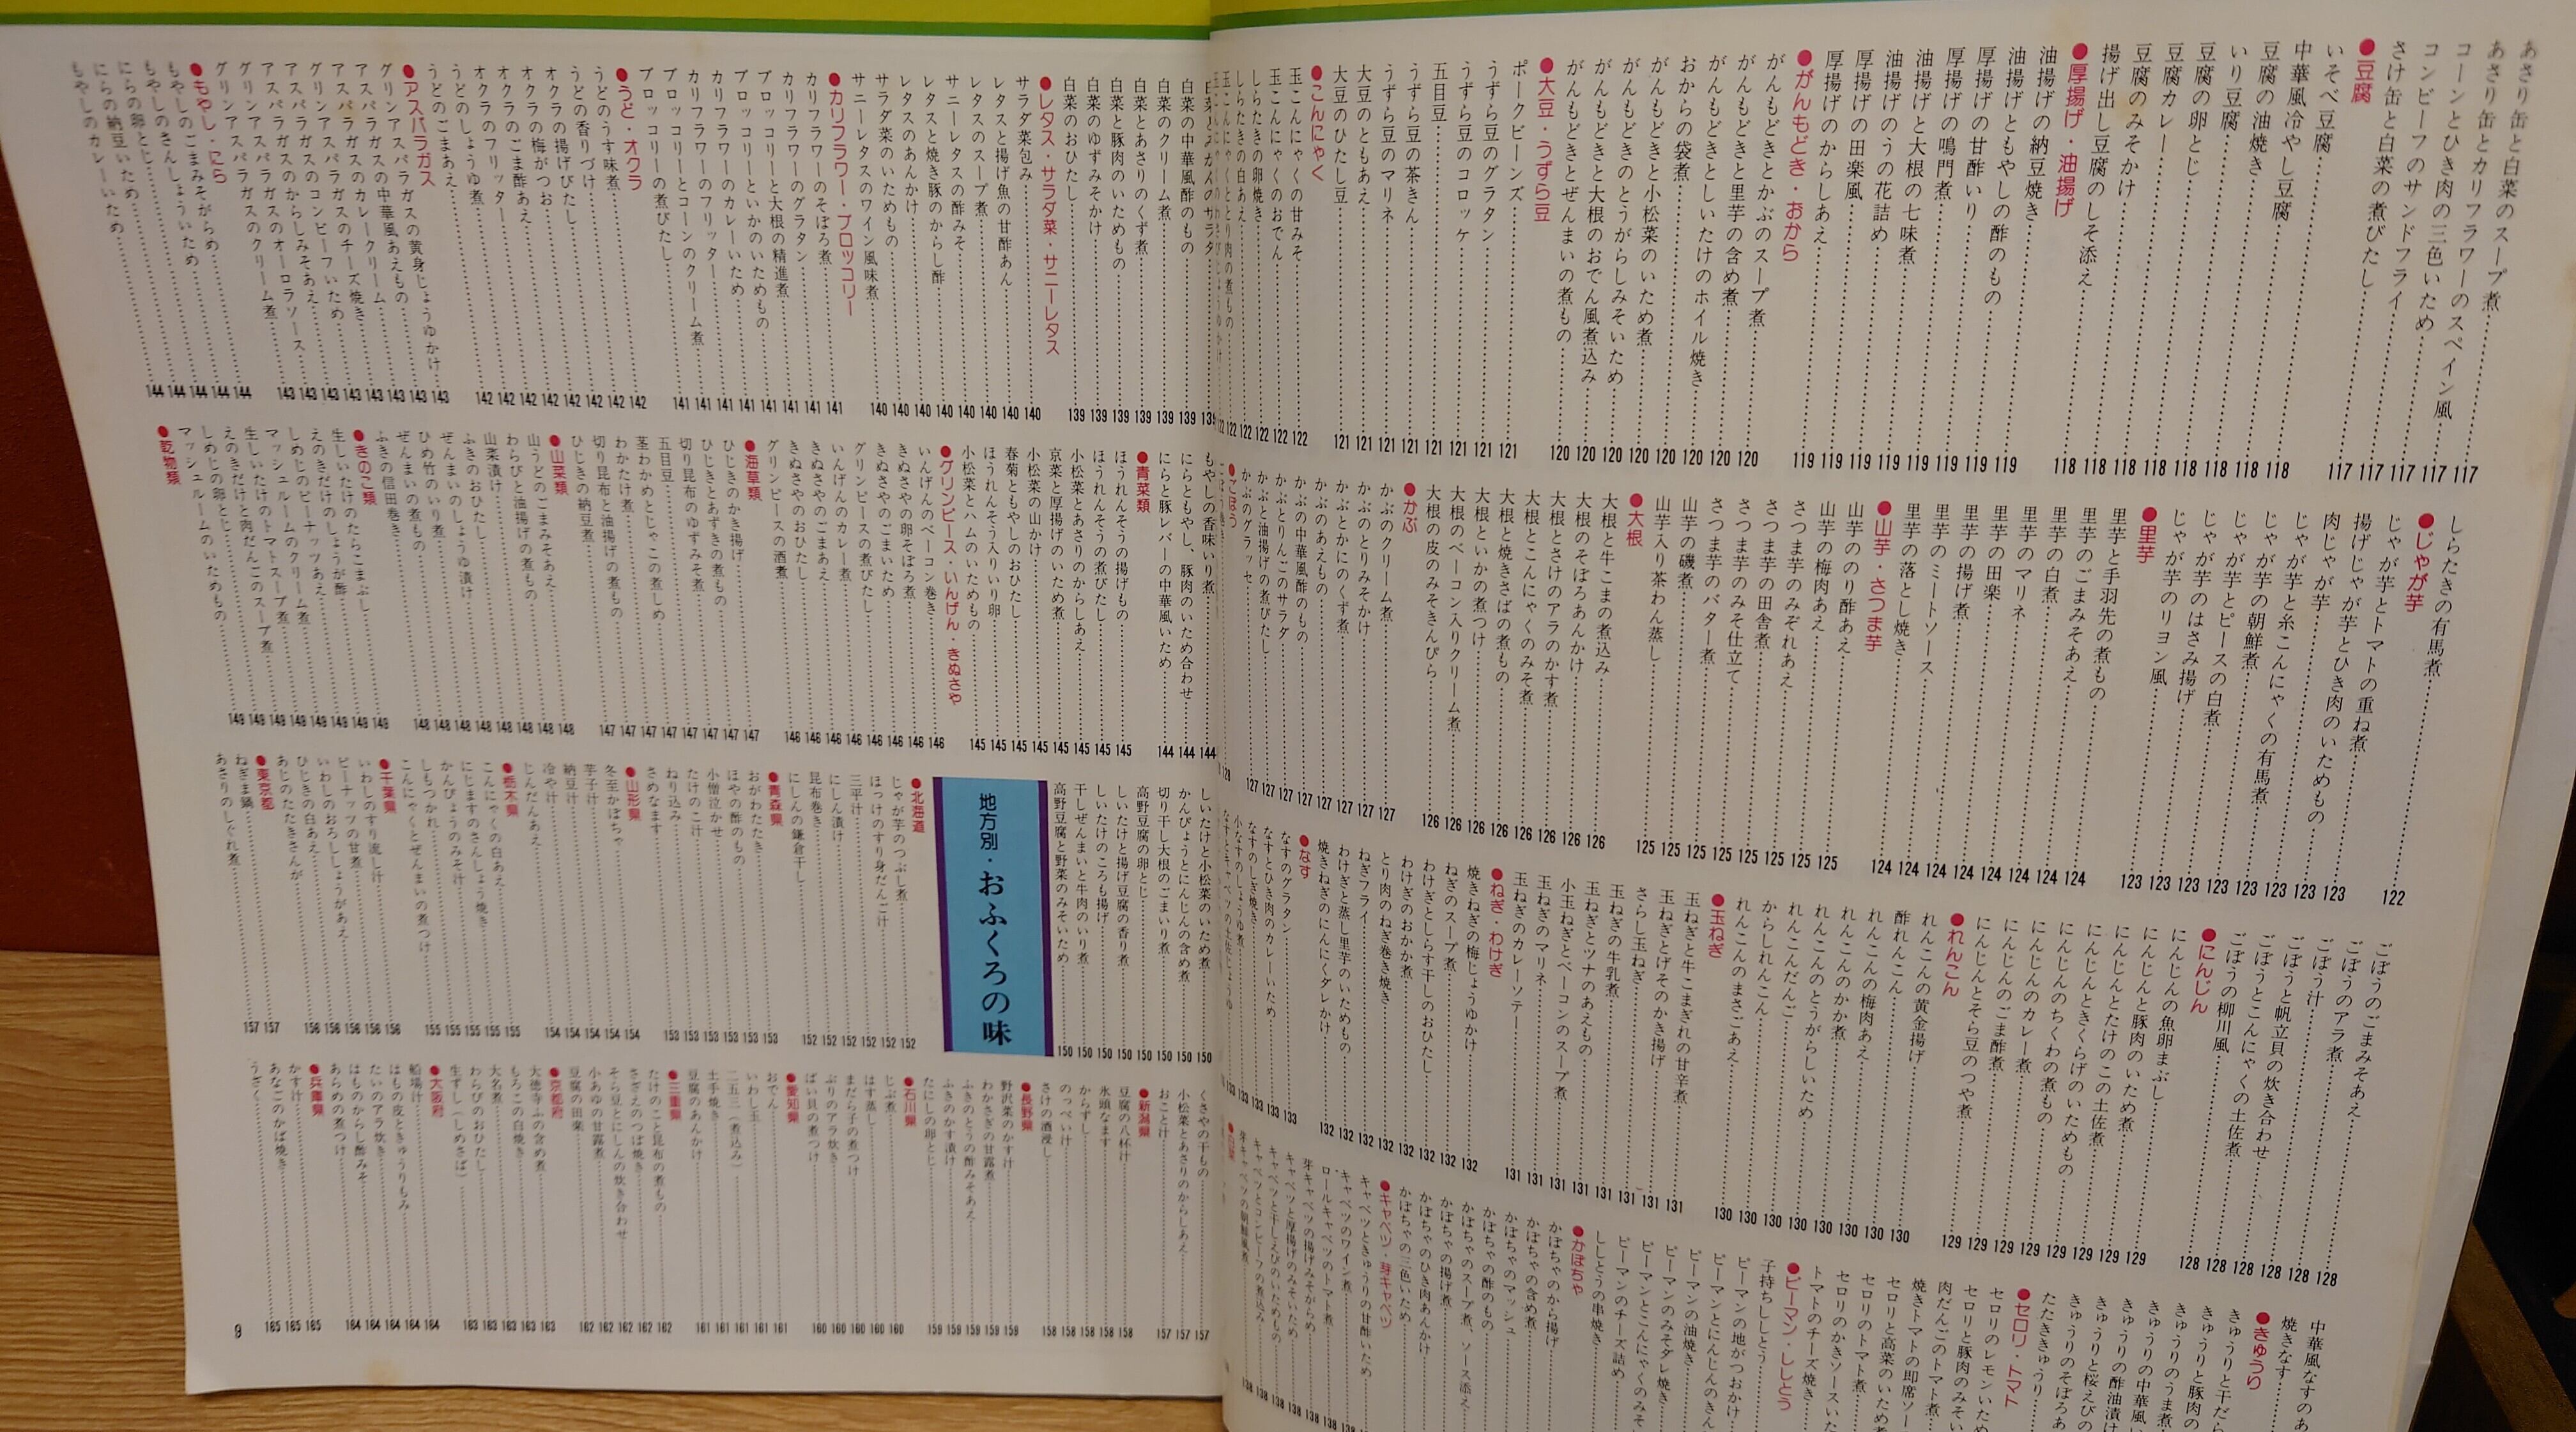 あさり缶と白菜のスープ煮
あさり缶とカリフラワーのスペイン風 117
コーンとひき肉の三色いため 117
コンビーフのサンドフライ 117
さけ缶と白菜の煮びたし 117
●豆腐
いそべ豆腐 117
中華風冷やし豆腐 118
豆腐の油焼き 118
いり豆腐 118
豆腐の卵とじ 118
豆腐カレー 118
豆腐のみそかけ 118
揚げ出し豆腐のしそ添え 118
●厚揚げ・油揚げ
油揚げの納豆焼き 119
油揚げともやしの酢のもの 119
厚揚げの甘酢いり 119
厚揚げの鳴門煮 119
油揚げと大根の七味煮 119
油揚げのうの花詰め 119
厚揚げの田楽風 119
厚揚げのからしあえ 119
●がんもどき・おから
がんもどきとかぶのスープ煮 120
がんもどきと里芋の含め煮 120
おからの袋煮 120
がんもどきとしいたけのホイル焼き 120
がんもどきと小松菜のいため煮 120
がんもどきのとうがらしみそいため 120
がんもどきと大根のおでん風煮込み 120
がんもどきとぜんまいの煮もの 120
●大豆・うずら豆
ポークビーンズ 121
うずら豆のグラタン 121
うずら豆のコロッケ 121
五目豆 121
うずら豆の茶きん 121
うずら豆のマリネ 121
大豆のともあえ 121
大豆のひたし豆 121
●こんにゃく
玉こんにゃくの甘みそ 122
玉こんにゃくのおでん 122
しらたきの卵焼き 122
しらたきの白あえ 122
しらたきの有馬煮 122
●じゃが芋
じゃが芋とトマトの重ね煮
揚げじゃが芋とひき肉のいためもの 123
肉じゃが芋 123
じゃが芋と糸こんにゃくの有馬煮 123
じゃが芋の朝鮮煮 123
じゃが芋とピースの白煮 123
じゃが芋のはさみ揚げ 123
じゃが芋のリヨン風 123
●里芋
里芋と手羽先の煮もの 124
里芋のごまみそあえ 124
里芋の白煮 124
里芋のマリネ 124
里芋の田楽 124
里芋の揚げ煮 124
里芋のミートソース 124
里芋の落とし焼き 124
●山芋・さつま芋
山芋ののり酢あえ 125
山芋の梅肉あえ 125
さつま芋のみぞれあえ 125
さつま芋の田舎煮 125
さつま芋のみそ仕立て 125
さつま芋のバター煮 125
山芋の磯煮 125
山芋入り茶わん蒸し 125
●大根
大根と牛こまの煮込み 126
大根のそぼろあんかけ 126
大根とさけのアラのかす煮 126
大根とこんにゃくのみそ煮 126
大根と焼きさばの煮もの 126
大根といかの煮つけ 126
大根のベーコン入りクリーム煮 126
大根の皮のみそきんぴら 126
●かぶ
かぶのクリーム煮 127
かぶのとりみそかけ 127
かぶとかにのくず煮 127
かぶのあえもの 127
かぶの中華風酢のもの 127
かぶとりんごのサラダ 127
かぶと油揚げの煮びたし 127
かぶのグラッセ 127
●ごぼう
ごぼうのごまみそあえ 128
ごぼうのアラ煮 128
ごぼう汁 128
ごぼうと帆立貝の炊き合わせ 128
ごぼうとこんにゃくの土佐煮 128
ごぼうの柳川風 128
●にんじん
にんじんの魚卵まぶし 129
にんじんと豚肉のいため煮 129
にんじんとたけのこの土佐煮 129
にんじんときくらげのいためもの 129
にんじんのちくわの煮もの 129
にんじんのカレー煮 129
にんじんのごま酢煮 129
にんじんとそら豆のつや煮 129
●れんこん
れんこんの黄金揚げ 130
酢れんこん 130
れんこんの梅肉あえ 130
れんこんのかか煮 130
れんこんのとうがらしいため 130
れんこんだんご 130
からしれんこん 130
れんこんのまさごあえ 130
●玉ねぎ
玉ねぎと牛こまぎれの甘辛煮 131
玉ねぎとげそのかき揚げ 131
さらし玉ねぎ 131
玉ねぎの牛乳煮 131
玉ねぎとツナのあえもの 131
小玉ねぎとベーコンのスープ煮 131
玉ねぎのマリネ 131
玉ねぎのカレーソテー 131
●ねぎ・わけぎ
焼きねぎの梅じょうゆかけ 132
ねぎのスープ煮 132
わけぎとしらす干しのおひたし 132
わけぎのおかか煮 132
とり肉のねぎ巻き焼き 132
ねぎフライ 132
わけぎと蒸し里芋のいためもの 132
焼きねぎのにんにくダレかけ 132
●なす
なすのグラタン 133
なすとひき肉のカレーいため 133
なすのしぎ焼き 133
小なすのしょうゆ煮 133
中華風なすのあ
焼きなす
●きゅうり
きゅうりと干だら
きゅうりと豚肉の
きゅうりのうま煮
きゅうりの中華風い
きゅうりの酢油漬け
きゅうりと桜えびの
きゅうりのそぼろあ
たたききゅうり
●セロリ・トマト
セロリのレモンいため
セロリと豚肉のみそい
肉だんごのトマト煮
焼きトマトの即席ソー
セロリと高菜のいため煮
セロリのトマト煮
セロリのかきソースいた
トマトのチーズ焼き
●ピーマン・ししとう
子持ちししとう
ピーマンの地がつおかけ
ピーマンとにんじんのきん
ピーマンの油焼き
ピーマンのみそダレ焼き
ピーマンとこんにゃくのみそ
ピーマンのチーズ詰め
ししとうの串焼き
●かぼちゃ
かぼちゃのから揚げ
かぼちゃの含め煮
かぼちゃのマッシュ
かぼちゃの酢のもの
かぼちゃのスープ煮、ソース添え
かぼちゃの揚げ煮
かぼちゃのひき肉あんかけ
かぼちゃの三色いため
●キャベツ・芽キャベツ
キャベツときゅうりの甘酢いため 138
キャベツのワイン煮 138
ロールキャベツのトマト煮 138
芽キャベツの揚げみそがらめ 138
キャベツと厚揚げのみそいため 138
キャベツと干しえびのいためもの 138
キャベツとコンビーフの煮込み 138
芽キャベツの朝鮮風煮 138
白菜の中華風酢のもの 139
白菜のクリーム煮 139
白菜とあさりのくず煮 139
白菜と豚肉のいためもの 139
白菜のゆずみそかけ 139
白菜のおひたし 139
●レタス・サラダ菜・サニーレタス
サラダ菜包み 140
レタスと揚げ魚の甘酢あん 140
レタスのスープ煮 140
サニーレタスの酢みそ 140
レタスと焼き豚のからし酢 140
レタスのあんかけ 140
サラダ菜のいためもの 140
サニーレタスのワイン風味煮 140
●カリフラワー・ブロッコリー
カリフラワーのそぼろ煮 141
カリフラワーのグラタン 141
ブロッコリーと大根の精進煮 141
ブロッコリーといかのいためもの 141
カリフラワーのカレーいため 141
カリフラワーのフリッター 141
ブロッコリーとコーンのクリーム煮 141
ブロッコリーの煮びたし 141
●うど・オクラ
うどのうす味煮 142
うどの香りづけ 142
オクラの揚げびたし 142
オクラの梅がつお 142
オクラのごま酢あえ 142
オクラのフリッター 142
うどのしょうゆ煮 142
うどのごまあえ 142
●アスパラガス
グリンアスパラガスの黄身じょうゆかけ 143
アスパラガスの中華風あえもの 143
アスパラガスのカレークリーム 143
グリンアスパラガスのチーズ焼き 143
アスパラガスのコンビーフいため 143
アスパラガスのからしみそあえ 143
グリンアスパラガスのオーロラソース 143
グリンアスパラガスのクリーム煮 143
●もやし・にら
もやしのごまみそがらめ 144
もやしのさんしょういため 144
にらの卵とじ 144
にらの納豆いため 144
もやしのカレーいため 144
もやしの香味いり煮 144
にらともやし、豚肉のいため合わせ 144
にらと豚レバーの中華風いため 144
●青菜類
ほうれんそうの揚げもの 145
ほうれんそうの煮びたし 145
小松菜とあさりのからしあえ 145
京菜と厚揚げのいため煮 145
小松菜の山かけ 145
春菊ともやしのおひたし 145
ほうれんそう入りいり卵 145
小松菜とハムのいためもの 145
●グリンピース・いんげん・きぬさや
いんげんのベーコン巻き 146
きぬさやの卵そぼろ煮 146
きぬさやのごまいため 146
グリンピースの煮びたし 146
いんげんのカレー煮 146
きぬさやのごまあえ 146
きぬさやのおひたし 146
グリンピースの酒煮 146
●海草類
ひじきのかき揚げ 147
ひじきとあずきの煮もの 147
切り昆布のゆずみそ煮 147
五目豆 147
茎わかめとじゃこの煮しめ 147
わかたけ煮 147
切り昆布と油揚げの煮もの 147
ひじきの納豆煮 147
●山菜類
山うどのごまみそあえ 148
わらびと油揚げの煮もの 148
山菜漬け 148
ふきのおひたし 148
ぜんまいのしょうゆ漬け 148
ひめ竹のいり煮 148
ぜんまいの煮もの 148
ふきの信田巻き 148
●きのこ類
生しいたけのたらこまぶし 149
えのきだけのしょうが酢 149
しめじのピーナッツあえ 149
マッシュルームのクリーム煮 149
生しいたけのトマトスープ煮 149
えのきだけと肉だんごのスープ煮 149
しめじの卵とじ 149
マッシュルームのいためもの 149
●乾物類
しいたけと小松菜のいため煮 150
かんぴょうとにんじんの含め煮 150
切り干し大根のごまいり煮 150
高野豆腐の卵とじ 150
しいたけと揚げ豆腐の香り煮 150
しいたけのころも揚げ 150
干しぜんまいと牛肉のいり煮 150
高野豆腐と野菜のみそいため 150
地方別・おふくろの味
●北海道
じゃが芋のつぶし煮 152
ほっけのすり身だんご汁 152
三平汁 152
にしん漬け 152
昆布巻き 152
にしんの鎌倉干し 152
●青森県
おがわたたき 153
ほやの酢のもの 153
小僧泣かせ 153
たけのこ汁 153
ねり込み 153
さめなます 153
●山形県
冬至かぼちゃ 154
芋子汁 154
納豆汁 154
冷や汁 154
じんだんあえ 154
●栃木県
こんにゃくの白あえ 155
にじますのさんしょう焼き 155
かんぴょうのみそ汁 155
しもつかれ 155
こんにゃくとぜんまいの煮つけ 155
●千葉県
いわしのすり流し汁 156
ピーナッツの甘煮 156
いわしのおろししょうがあえ 156
ひじきの白あえ 156
あじのたたきさんが 156
●東京都
ねぎま鍋 157
あさりのしぐれ煮 157
くさやの干もの 157
小松菜とあさりのからしあえ 157
おこと汁 157
●新潟県
豆腐の八杯汁 158
氷頭なます 158
からずし 158
のっぺい汁 158
さけの酒浸し 158
●長野県
野沢菜のかす汁 159
わかさぎの甘露煮 159
ふきのとうの酢みそあえ 159
ふきのかす漬け 159
たにしの卵とじ 159
●石川県
じぶ煮 160
はす蒸し 160
まだら子の煮つけ 160
ぶりのアラ炊き 160
ばい貝の煮つけ 160
●愛知県
おでん 161
いわし玉 161
二五三（煮込み） 161
土手焼き 161
豆腐のあんかけ 161
●三重県
たけのこと昆布の煮もの 162
さざえのつぼ焼き 162
そら豆とにしんの炊き合わせ 162
小あゆの甘露煮 162
豆腐の田楽 162
●京都府
大徳寺ふの含め煮 163
もろこの白焼き 163
大名煮 163
わらびのおひたし 163
生ずし（しめさば） 163
●大阪府
船場汁 164
はもの皮ときゅうりもみ 164
たいのアラ炊き 164
はものからし酢みそ 164
あらめの煮つけ 164
●兵庫県
かす汁 165
あなごのかば焼き 165
うざく 165
9